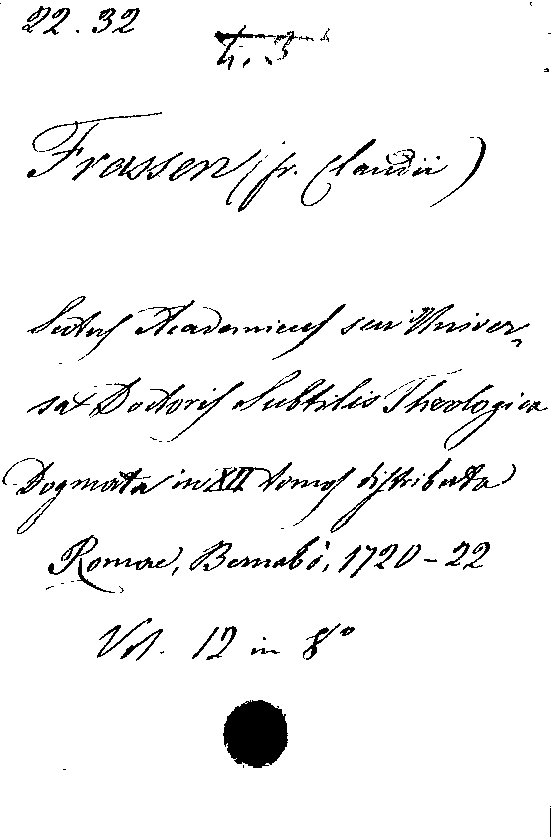 22.32
h. 3
Frassen (fr. Claudii)
Scotus Academicus seu Univer-
sa Doctoris Subtilis Theologica
Dogmata in XII tomos distributa
Romae, Bernabò, 1720-22
Vol. 12 in 8°